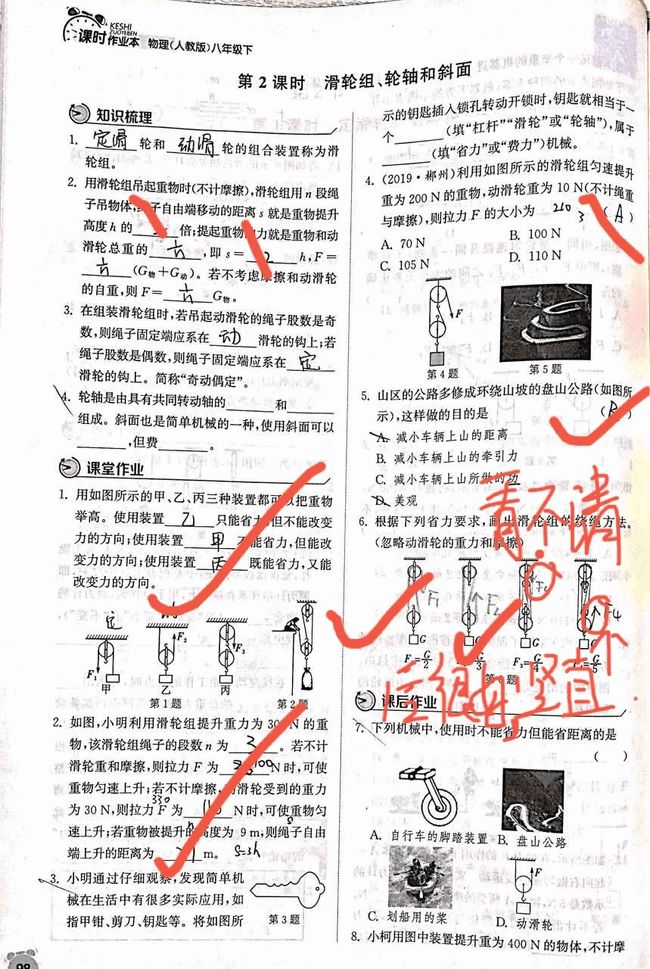 KESHI
ZUOYEBEN
课时作业本 物理(人教版)八年级下
第2课时 滑轮组、轮轴和斜面
知识梳理
1. 定滑 轮和 动滑 轮的组合装置称为滑
轮组。
2. 用滑轮组吊起重物时(不计摩擦),滑轮组用 n 段绳
子吊物体,绳子自由端移动的距离 s 就是重物提升
高度 h 的 倍;提起重物的力就是重物和动
滑轮总重的 1/n ,即 s= h,F=
1/n (G物+G动)。若不考虑摩擦和动滑轮
的自重,则 F= 1/n G物。
3. 在组装滑轮组时,若吊起动滑轮的绳子股数是奇
数,则绳子固定端应系在 动 滑轮的钩上;若
绳子股数是偶数,则绳子固定端应系在 定
滑轮的钩上。简称“奇动偶定”。
4. 轮轴是由具有共同转动轴的 和
组成。斜面也是简单机械的一种,使用斜面可以
,但费 。
课堂作业
1. 用如图所示的甲、乙、丙三种装置都可以把重物
举高。使用装置 乙 只能省力,但不能改变
力的方向;使用装置 甲 不能省力,但能改
变力的方向;使用装置 丙 既能省力,又能
改变力的方向。
定 动
F₁ F₂ F₃
甲 乙 丙
第1题 第2题
2. 如图,小明利用滑轮组提升重力为 300 N 的重
物,该滑轮组绳子的段数 n 为 3 。若不计
滑轮重和摩擦,则拉力 F 为 100 N 时,可使
重物匀速上升;若不计摩擦,动滑轮受到的重力
330
为 30 N,则拉力 F 为 110 N 时,可使重物匀
速上升;若重物被提升的高度为 9 m,则绳子自由
端上升的距离为 m。 s=3h
3. 小明通过仔细观察,发现简单机
械在生活中有很多实际应用,如
指甲钳、剪刀、钥匙等。将如图所
第3题
98
示的钥匙插入锁孔转动开锁时,钥匙就相当于一
个 (填“杠杆”“滑轮”或“轮轴”),属于
(填“省力”或“费力”)机械。
4. (2019·郴州)利用如图所示的滑轮组匀速提升
重为 200 N 的重物,动滑轮重为 10 N(不计绳重
与摩擦),则拉力 F 的大小为 (A)
A. 70 N B. 100 N
C. 105 N D. 110 N
F
第4题 第5题
5. 山区的公路多修成环绕山坡的盘山公路(如图所
示),这样做的目的是 (B)
A. 减小车辆上山的距离
B. 减小车辆上山的牵引力
C. 减小车辆上山所做的功
D. 美观
看不清
6. 根据下列省力要求,画出滑轮组的绕绳方法。
(忽略动滑轮的重力和摩擦)
F₁ F₂ F₃ F₄
G G G G
F₁=G/2 F₂=G/3 F₃=G/4 F₄=G/5
第6题
课后作业
7. 下列机械中,使用时不能省力但能省距离的是
( )
A. 自行车的脚踏装置 B. 盘山公路
C. 划船用的桨 D. 动滑轮
8. 小柯用图中装置提升重为 400 N 的物体,不计摩